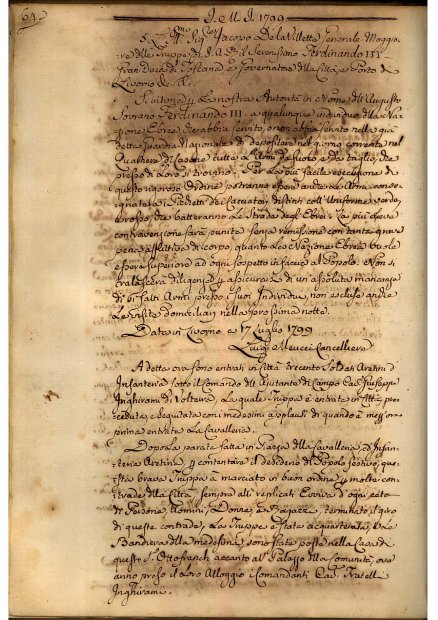 64.
J. M. J. 1799
Jacopo De la Villette Generale Maggio-
re delle Truppe di S. A. R. il Serenissimo Ferdinando III.
Gran Duca di Toscana e Governatore della Città, e Porto di
Livorno &c.
S'intima p. la nostra Autorità in Nome dell'Augusto
Sovrano Ferdinando III. a qualunque individuo della Na-
zione Ebrea che abbia servito, o non abbia servito nella già
detta Guardia Nazionale di depositare nel giorno corrente nel
Quartiere di tutte le Armi da fuoco, e da taglio, che
presso di Loro si trovino. Per la più facile esecuzione di
questo rigoroso Ordine potranno le Armi conse-
gnate a i Picchetti dei Cacciatori distinti coll'Uniforme verde,
e rosso, che batteranno le Strade degli Ebrei. La più lieve
contravenzione sarà punita senza remissione con tanta grave
pena afflittiva di corpo, quanto la Nazione Ebrea vuole
essere superiore ad ogni sospetto in faccia al Popolo. Non si
diligenza p. assicurarsi di un'assoluta mancanza
di sì fatte Armi presso i suoi Individui, non escluse anche
le visite domiciliari nella prossima notte.
Data in Livorno a 17 Luglio 1799
Luigi Meucci Cancelliere
A detta ora sono entrati in Città Soldati Aretini d'
Infanteria sotto il Comando dell'Ajutante di Campo Cav. Giuseppe
Inghirami di Volterra, la quale Truppa è entrata in Città pre-
ceduta, e seguitata con i medesimi applausi di quando
prima entrata la Cavalleria.
Dopo la parata fatta in Piazza dalla Cavalleria, ed Infan-
teria Aretina p. contentare il desiderio del Popolo festivo, que-
sta brava Truppa à marciato in buon ordine p. molte con-
trade della Città, sempre alli replicati Evviva d'ogni ceto
di Persone, Uomini, Donne, e Ragazzi, terminato il giro
di queste contrade, la Truppa è stata acquartierata, e la
Bandiera della medesima, sono state poste nella Casa di
questo Sr. Ottofranchi accanto al Palazzo della Comunità, ove
anno preso il Loro Alloggio i Comandanti Cav. Fratelli
Inghirami.